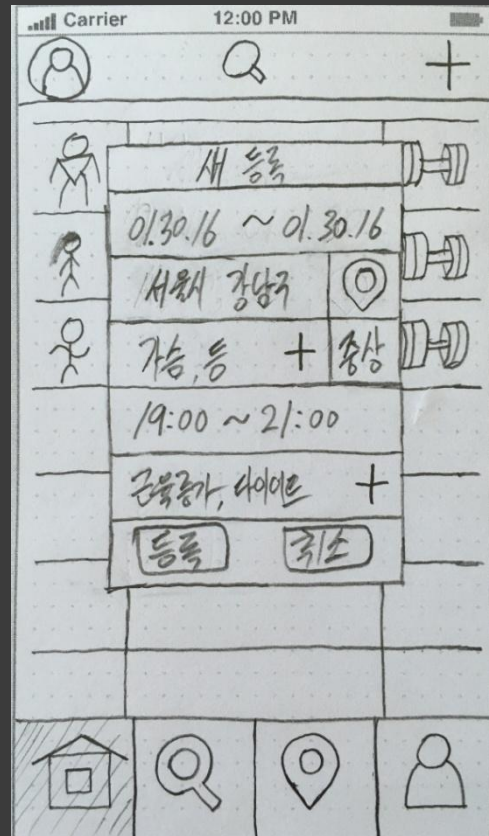 Carrier 12:00 PM
새 등록
01.30.16 ~ 01.30.16
서울시 강남구
가슴, 등 + 중상
19:00 ~ 21:00
근육증가, 다이어트 +
등록 취소